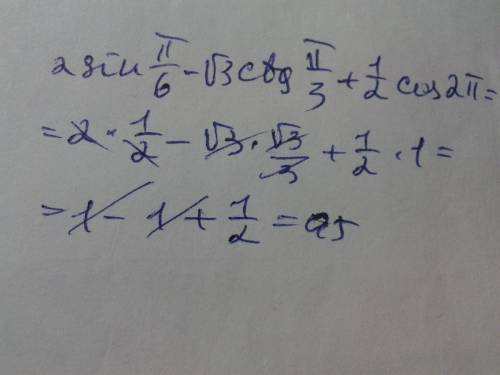 2 sin π/6 - √3 ctg π/3 + 1/2 cos 2π =
= 2 · 1/2 - √3 · √3/3 + 1/2 · 1 =
= 1 - 1 + 1/2 = 0,5